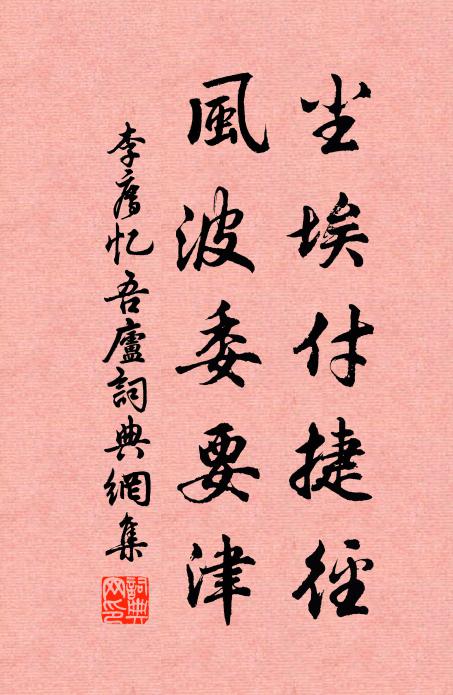 尘埃付捷徑
風波委要津
李廌忆吾廬詞典網集
詞典网印